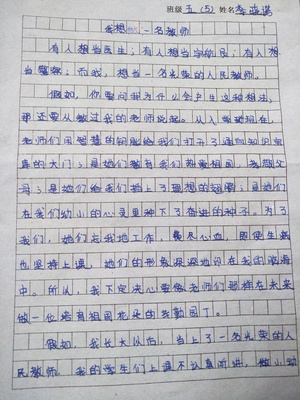 班级 五（5） 姓名 李
我想当一名教师
有人想当医生；有人想当宇航员；有人想
当警察；而我，想当一名光荣的人民教师。
假如，你要问我为什么会产生这种想法，
那还要从教过我的老师说起。从入学到现在，
老师们用智慧的钥匙给我们打开了通向知识宝
库的大门；是她们教育我们热爱祖国，孝敬父
母；是她们给我们插上了理想的翅膀；是她们
在我们幼小的心灵里种下了奋进的种子。为了
我们，她们忘我地工作，费尽心血，即使生病
也坚持上课，她们的形象深深地印在我的脑海
中。所以，我下定决心要像老师们那样在未来
做一位培育祖国花朵的辛勤园丁。
假如，我长大以后，当上了一名光荣的人
民教师。我的学生们上课不认真听讲，做小动